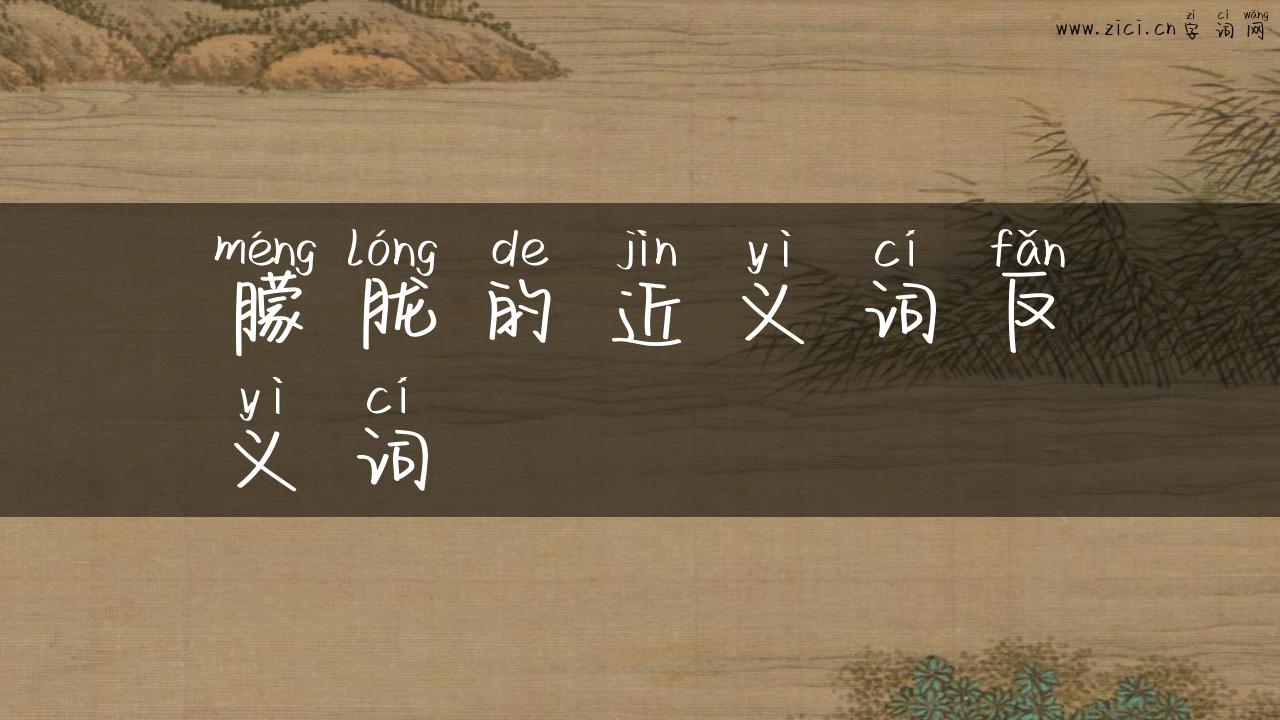 zì cí wǎng
www.zici.cn 字词网
méng lóng de jìn yì cí fǎn
朦胧的近义词反
yì cí
义词